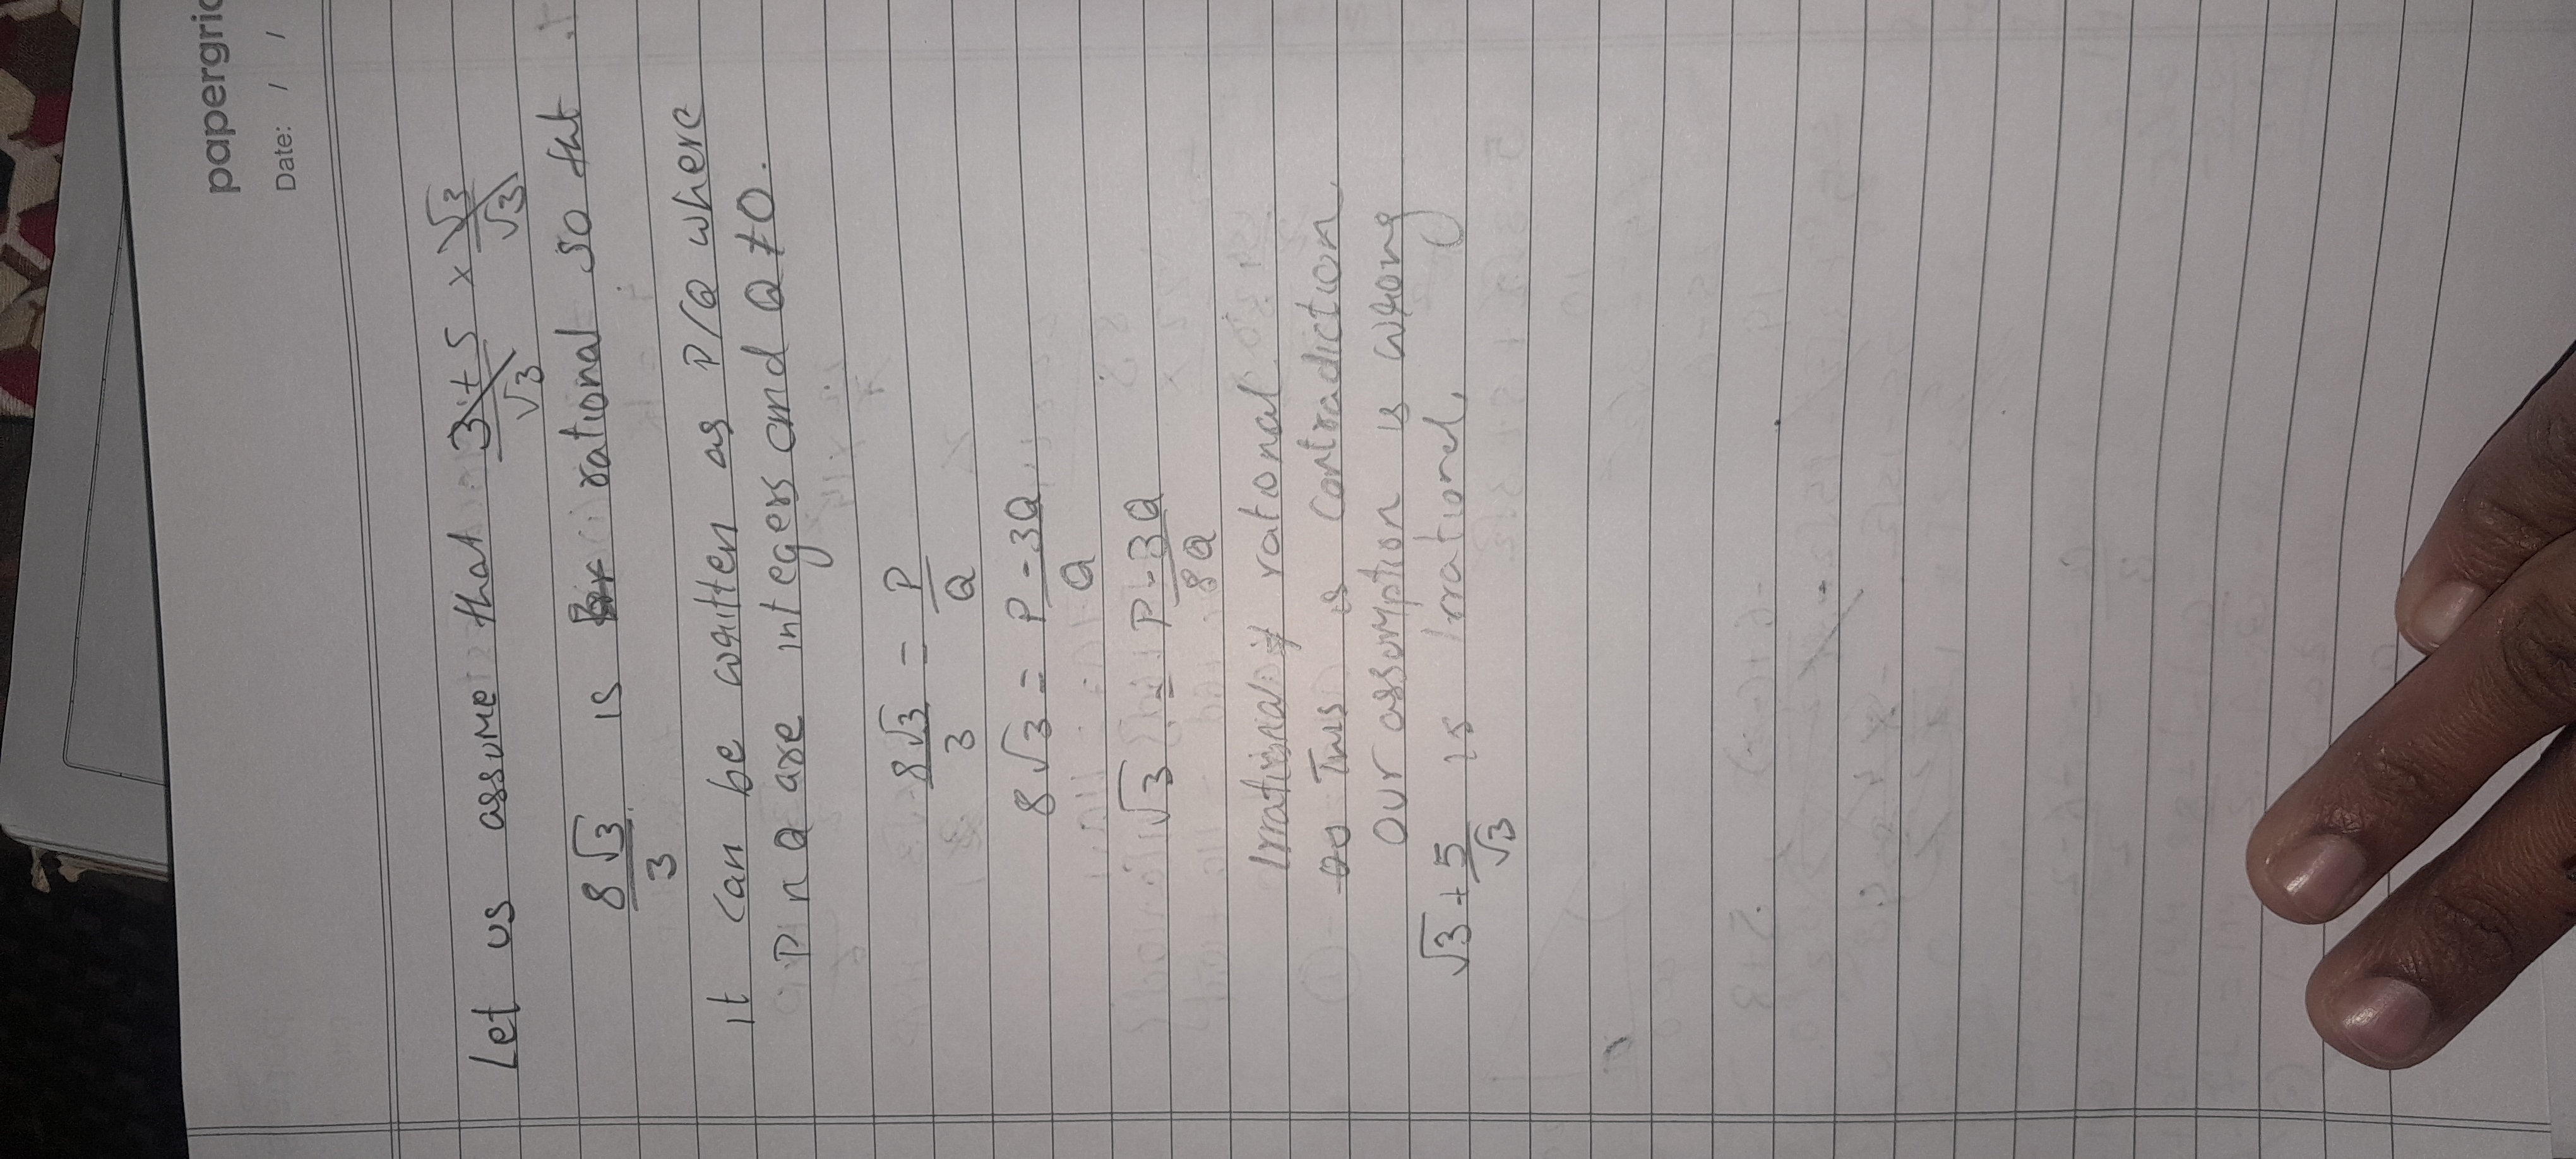 papergrid
Date: / /
Let us assume that 3+5/√3 × √3/√3
8√3/3 is rational so tht
it can be written as P/Q where
P n Q are integers and Q ≠ 0.
8√3/3 = P/Q
8√3 = P-3Q/Q
√3 = P-3Q/8Q
Irrational ≠ rational
This is contradiction
Our assumption is wrong
√3+5/√3 is Irrational.